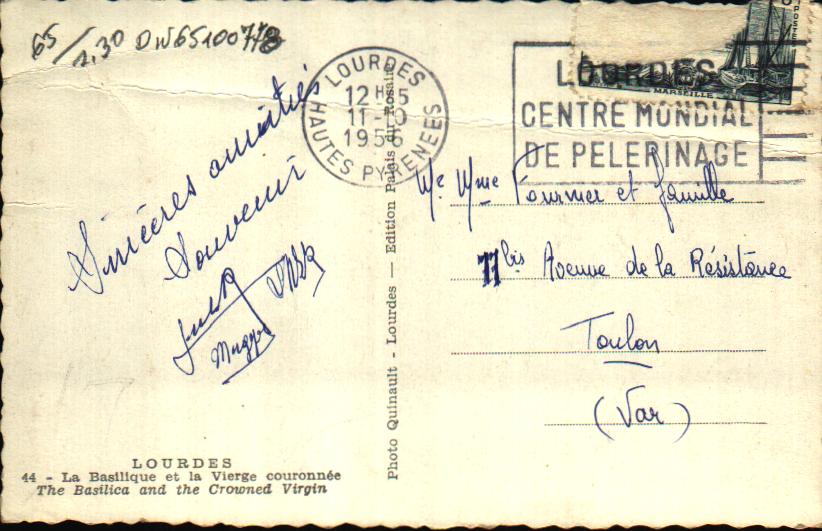 65/1,30 DW6510077B
LOURDES
12H45
11-10
1956
HAUTES PYRENEES
POSTES
MARSEILLE
LOURDES
CENTRE MONDIAL
DE PELERINAGE
Sincères amitiés
Souvenir
Maggy
Mr Mme Fournier et famille
11bis Avenue de la Résistance
Toulon
(Var)
Photo Quinault - Lourdes — Edition Palais du Rosaire
LOURDES
44 - La Basilique et la Vierge couronnée
The Basilica and the Crowned Virgin